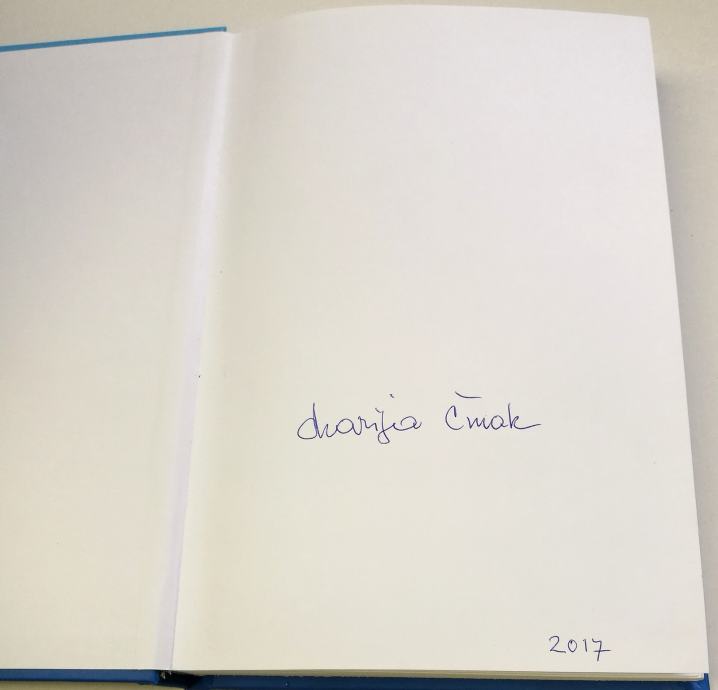 Marija Čmak
2017